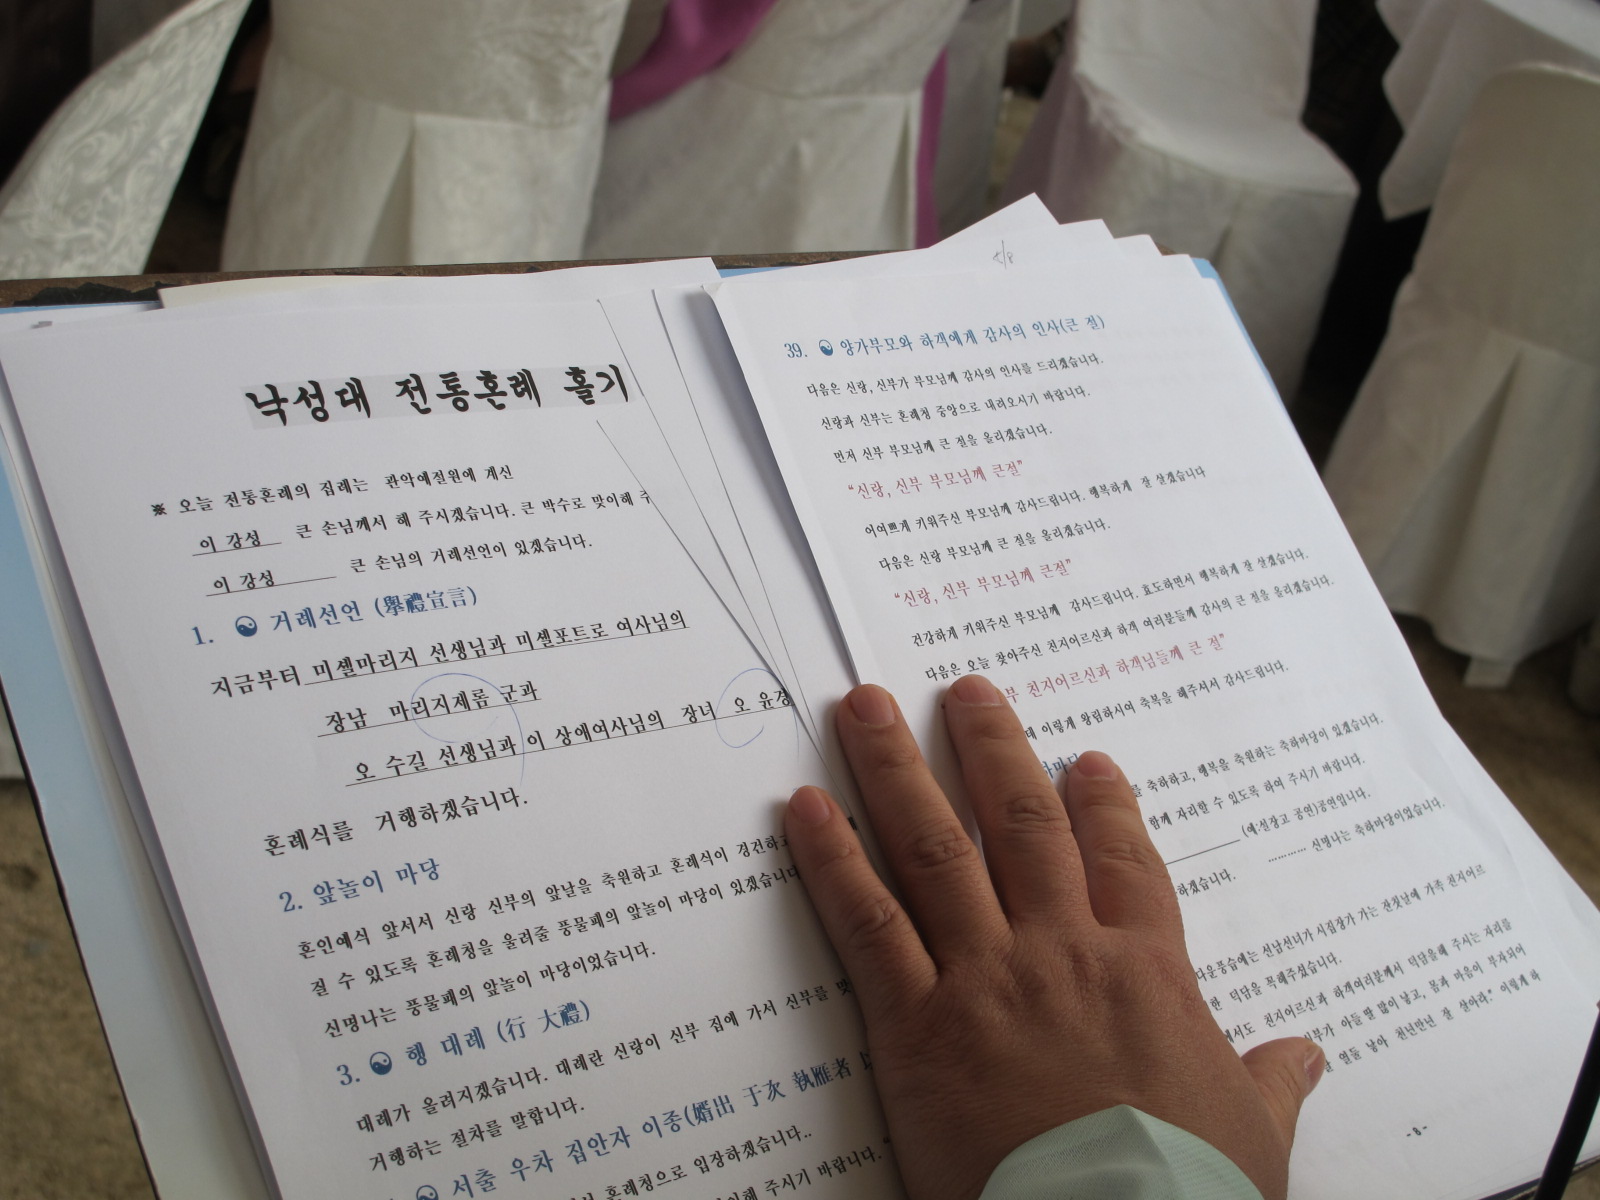 낙성대 전통혼례 홀기
※ 오늘 전통혼례의 집례는 관악예절원에 계신
이 강성 큰 손님께서 해 주시겠습니다. 큰 박수로 맞이해 주
이 강성 큰 손님의 거례선언이 있겠습니다.
1. 거례선언 (擧禮宣言)
지금부터 미셸마리지 선생님과 미셸포트로 여사님의
장남 마리지제롬 군과
오 수길 선생님과 이 상애여사님의 장녀 오 유경
혼례식를 거행하겠습니다.
2. 앞놀이 마당
혼인예식 앞서서 신랑 신부의 앞날을 축원하고 혼례식이 경건하고
걸 수 있도록 혼례청을 울려줄 풍물패의 앞놀이 마당이 있겠습니다
신명나는 풍물패의 앞놀이 마당이었습니다.
3. 행 대례 (行 大禮)
대례가 올려지겠습니다. 대례란 신랑이 신부 집에 가서 신부를 맞
거행하는 절차를 말합니다.
서출 우차 집안자 이종(婿出 于次 執雁者 以
혼례청으로 입장하겠습니다..
주시기 바랍니다.
39. 양가부모와 하객에게 감사의 인사(큰 절)
다음은 신랑, 신부가 부모님께 감사의 인사를 드리겠습니다.
신랑과 신부는 혼례청 중앙으로 내려오시기 바랍니다.
먼저 신부 부모님께 큰 절을 올리겠습니다.
“신랑, 신부 부모님께 큰절”
어여쁘게 키워주신 부모님께 감사드립니다. 행복하게 잘 살겠습니다
다음은 신랑 부모님께 큰 절을 올리겠습니다.
“신랑, 신부 부모님께 큰절”
건강하게 키워주신 부모님께 감사드립니다. 효도하면서 행복하게 잘 살겠습니다.
다음은 오늘 찾아주신 친지어르신과 하객 여러분들께 감사의 큰 절을 올리겠습니다.
부 친지어르신과 하객님들께 큰 절”
데 이렇게 왕림하시여 축복을 해주셔서 감사드립니다.
마당
를 축하하고, 행복을 축원하는 축하마당이 있겠습니다.
함께 자리할 수 있도록 하여 주시기 바랍니다.
(예:설장고 공연)공연입니다.
………… 신명나는 축하마당이었습니다.
하겠습니다.
다운풍습에는 선남선녀가 시집장가 가는 잔칫날에 가족 친지어르
한 덕담을 꼭해주셨습니다.
에서도 친지어르신과 하객여러분께서 덕담을해 주시는 자리를
신부가 아들 딸 많이 낳고, 몸과 마음이 부자되어
열둘 낳아 천년만년 잘 살아라.” 이렇게 하
-8-